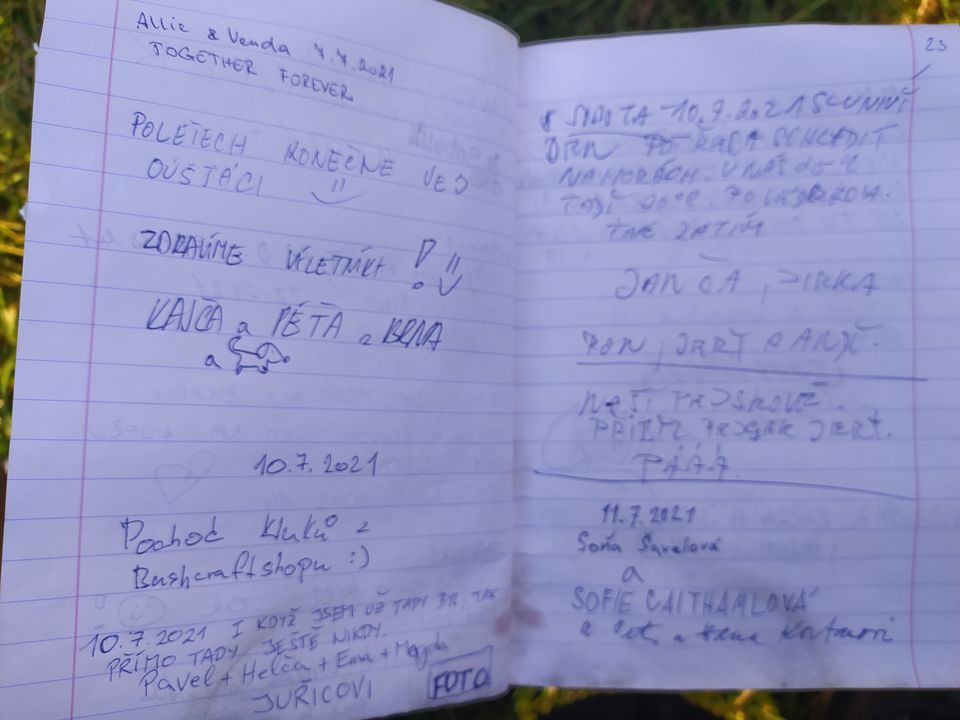 Allie & Venda 7.7.2021
TOGETHER FOREVER
POLETECH KONEČNĚ VEJ
OUŠTÁCI
ZDRAVÍME VÝLETNÍKY !
KAJČA a PÉŤA z BRNA
a
10.7.2021
Pochod kluků z
Bushcraftshopu :)
10.7.2021 I KDYŽ JSEM UŽ TADY BYL, TAK
PŘÍMO TADY JEŠTĚ NIKDY.
Pavel + Helča + Ema + Magda
JUŘICOVI
FOTO
23
SOBOTA 10.7.2021 SLUNNÝ
DEN SCHLADIT
NA HORÁCH. U NÁS 25°C
TADY 20°C.
ZATÍM
JANČA, JIRKA
RON, JERY A ANDY.
NAŠI PEJSKOVÉ.
PEJSEK JERY.
PÁÁÁ
11.7.2021
Soňa Šavelová
a
SOFIE CAITHAMLOVÁ
a Petr a Hana